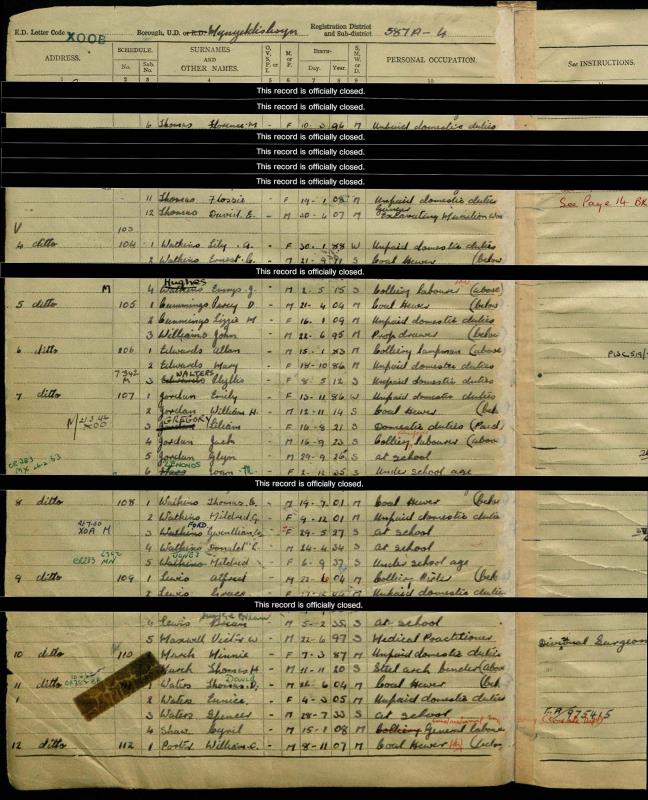 E.D. Letter Code XOOB Borough, U.D. or R.D. Mynyddislwyn Registration District and Sub-district 587A-4
ADDRESS. SCHEDULE. SURNAMES AND OTHER NAMES. O, V, S, P, or I. M. or F. BIRTH- S. M. W. or D. PERSONAL OCCUPATION. See INSTRUCTIONS.
No. Sub. No. Day. Year.
1 2 3 4 5 6 7 8 9 10
This record is officially closed.
This record is officially closed.
6 Thomas Florence M - F 10-3 96 M Unpaid domestic duties
This record is officially closed.
This record is officially closed.
This record is officially closed.
This record is officially closed.
11 Thomas Flossie - F 19-1 08 M Unpaid domestic duties See Page 14 BK
12 Thomas David E. - M 20-4 07 M Excavating Munition Wks
V 103
4 ditto 104 1 Watkins Lily. A. - F 30-1 88 W Unpaid domestic duties
2 Watkins Ernest C. - M 21-9 91 S Coal Hewer (below
This record is officially closed.
Hughes
M 4 Watkins Emrys J. - M 2-5 15 S Colliery labourer (above)
5 ditto 105 1 Cummings Percy D - M 21-4 04 M Coal Hewer (below
2 Cummings Lizzie M - F 16-1 09 M Unpaid domestic duties
3 Williams John - M 22-6 95 M Prop drawer (below
6 ditto 106 1 Edwards Allan - M 15-1 83 M Colliery lampman (above
2 Edwards Mary - F 18-10 86 M Unpaid domestic duties
WALTERS
M 3 Edwards Phyllis - F 8-5 12 S Unpaid domestic duties
7 ditto 107 1 Jordan Emily - F 13-11 86 W Unpaid domestic duties
2 Jordan William H. - M 12-11 14 S Coal Hewer (bel
GREGORY
3 Jordan Lilian - F 16-8 21 S Domestic duties (Paid)
4 Jordan Jack - M 16-9 23 S Colliery labourer (above
5 Jordan Glyn - M 29-9 26 S at school
6 Joan M. - F 2-12 35 S Under school age
This record is officially closed.
8 ditto 108 1 Watkins Thomas G. - M 19-7 01 M Coal Hewer (below
2 Watkins Mildred G. - F 9-12 01 M Unpaid domestic duties
FORD.
XOA M 3 Watkins Gwenllian - F 29-5 27 S at school
4 Watkins Donald L. - M 24-4 34 S at school
JONES
5 Watkins Mildred - F 6-9 37 S Under school age
9 ditto 109 1 Lewis Alfred - M 22-6 04 M Colliery Rider (below
2 Lewis Grace M Unpaid domestic duties
This record is officially closed.
4 Lewis Brian - M 5-2 35 S at school
5 Maxwell Victor W - M 22-6 97 S Medical Practitioner Divisional Surgeon
10 ditto 110 March Minnie - F 7-3 87 M Unpaid domestic duties
March Thomas H - M 11-11 20 S Steel arch bender (above
David
11 ditto 1 Waters Thomas D, - M 26-6 04 M Coal Hewer (bel
2 Waters Eunice. - F 4-3 05 M Unpaid domestic duties
3 Waters Spencer - M 28-7 33 S at school
4 Shaw Cyril - M 15-1 08 M Colliery General labourer
12 ditto 112 1 Porter William C. - M 8-11 07 M Coal Hewer (below